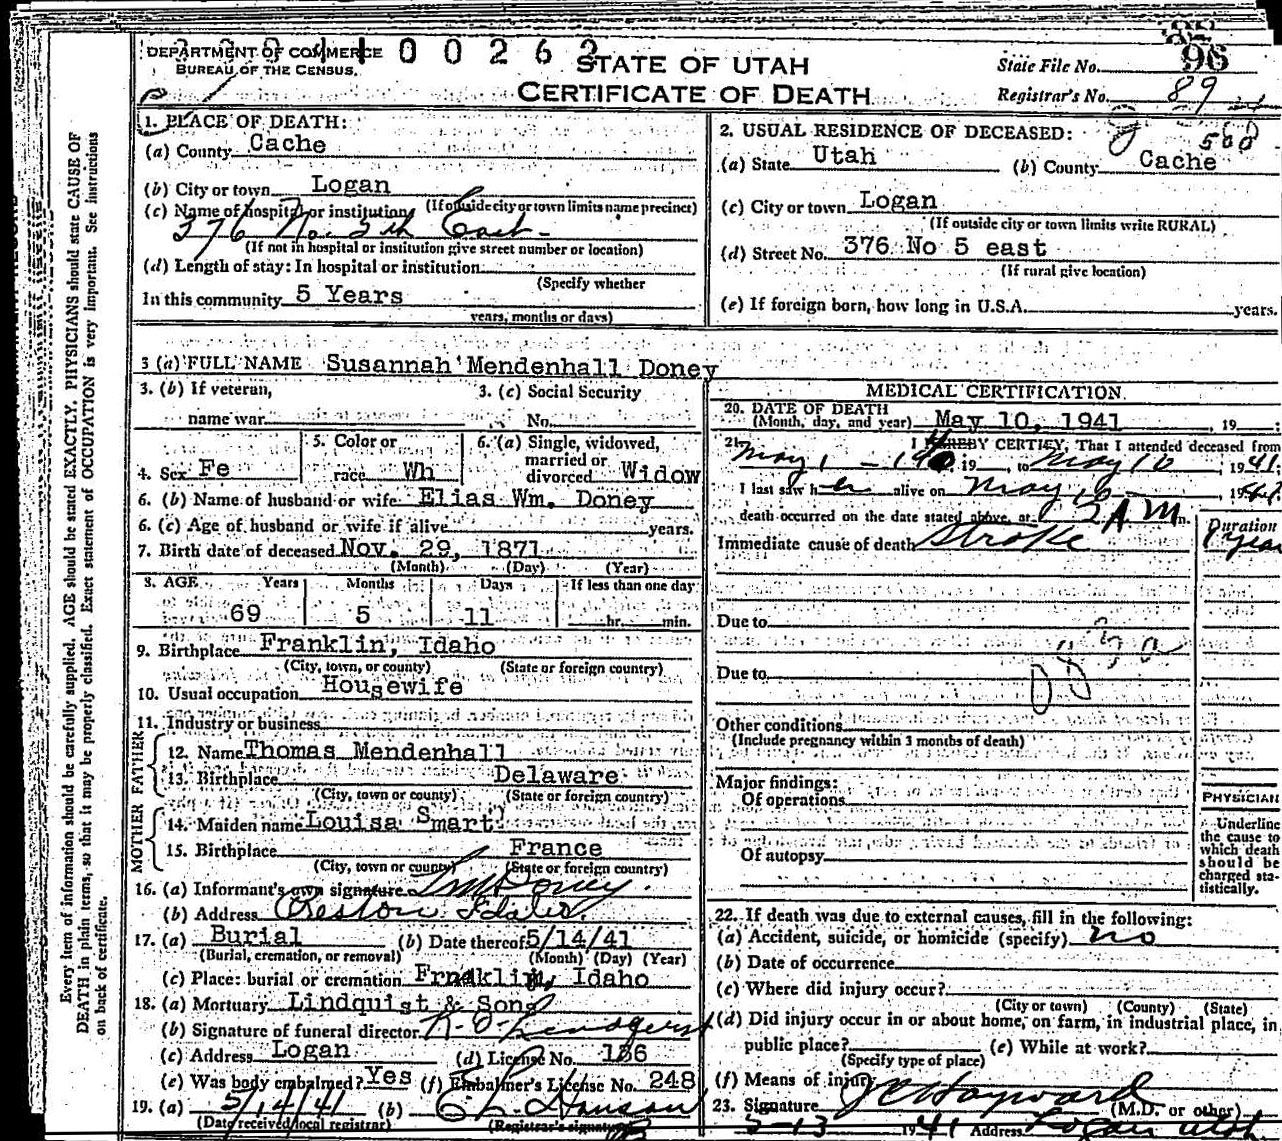 DEPARTMENT OF COMMERCE
BUREAU OF THE CENSUS.
00262
STATE OF UTAH
CERTIFICATE OF DEATH
State File No. 96
Registrar's No. 89
1. PLACE OF DEATH:
(a) County Cache
(b) City or town Logan
(If outside city or town limits name precinct)
(c) Name of hospital or institution
376 No. 5th East
(If not in hospital or institution give street number or location)
(d) Length of stay: In hospital or institution
(Specify whether
In this community 5 Years
years, months or days)
2. USUAL RESIDENCE OF DECEASED:
500
(a) State Utah (b) County Cache
(c) City or town Logan
(If outside city or town limits write RURAL)
(d) Street No. 376 No 5 east
(If rural give location)
(e) If foreign born, how long in U.S.A. years.
3 (a) FULL NAME Susannah Mendenhall Doney
3. (b) If veteran,
name war
3. (c) Social Security
No.
4. Sex Fe
5. Color or
race Wh
6. (a) Single, widowed,
married or
divorced Widow
6. (b) Name of husband or wife Elias Wm. Doney
6. (c) Age of husband or wife if alive years.
7. Birth date of deceased Nov. 29, 1871
(Month) (Day) (Year)
8. AGE Years Months Days If less than one day
69 5 11 hr. min.
9. Birthplace Franklin, Idaho
(City, town, or county) (State or foreign country)
10. Usual occupation Housewife
11. Industry or business
FATHER
12. Name Thomas Mendenhall
13. Birthplace Delaware
(City, town or county) (State or foreign country)
MOTHER
14. Maiden name Louisa Smart
15. Birthplace France
(City, town or county) (State or foreign country)
16. (a) Informant's own signature Doney
(b) Address Preston Idaho.
17. (a) Burial (b) Date thereof 5/14/41
(Burial, cremation, or removal) (Month) (Day) (Year)
(c) Place: burial or cremation Frnaklin, Idaho
18. (a) Mortuary Lindquist & Sons
(b) Signature of funeral director
(c) Address Logan (d) License No. 186
(e) Was body embalmed? Yes (f) Embalmer's License No. 248
19. (a) 5/14/41 (b)
(Date received local registrar) (Registrar's signature)
MEDICAL CERTIFICATION
20. DATE OF DEATH
(Month, day, and year) May 10, 1941, 19
21. I HEREBY CERTIFY, That I attended deceased from
May 1 - 19, to May 10, 1941.
I last saw her alive on May 10, 19
death occurred on the date stated above, at A M m.
Duration
Immediate cause of death Stroke 1 year
Due to
Due to
Other conditions
(Include pregnancy within 3 months of death)
Major findings:
Of operations
Of autopsy
PHYSICIAN
Underline
the cause to
which death
should be
charged sta-
tistically.
22. If death was due to external causes, fill in the following:
(a) Accident, suicide, or homicide (specify) no
(b) Date of occurrence
(c) Where did injury occur?
(City or town) (County) (State)
(d) Did injury occur in or about home, on farm, in industrial place, in
public place? (e) While at work?
(Specify type of place)
(f) Means of injury
23. Signature J C Hayward (M.D. or other)
5-13 1941 Address Logan Utah
Every item of information should be carefully supplied. AGE should be stated EXACTLY. PHYSICIANS should state CAUSE OF
DEATH in plain terms, so that it may be properly classified. Exact statement of OCCUPATION is very important. See instructions
on back of certificate.